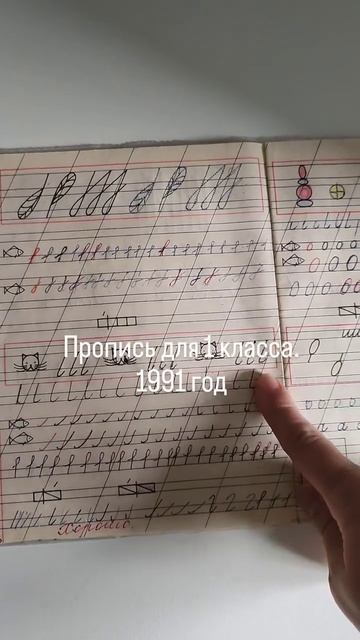 Пропись для 1 класса.
1991 год
Хорошо